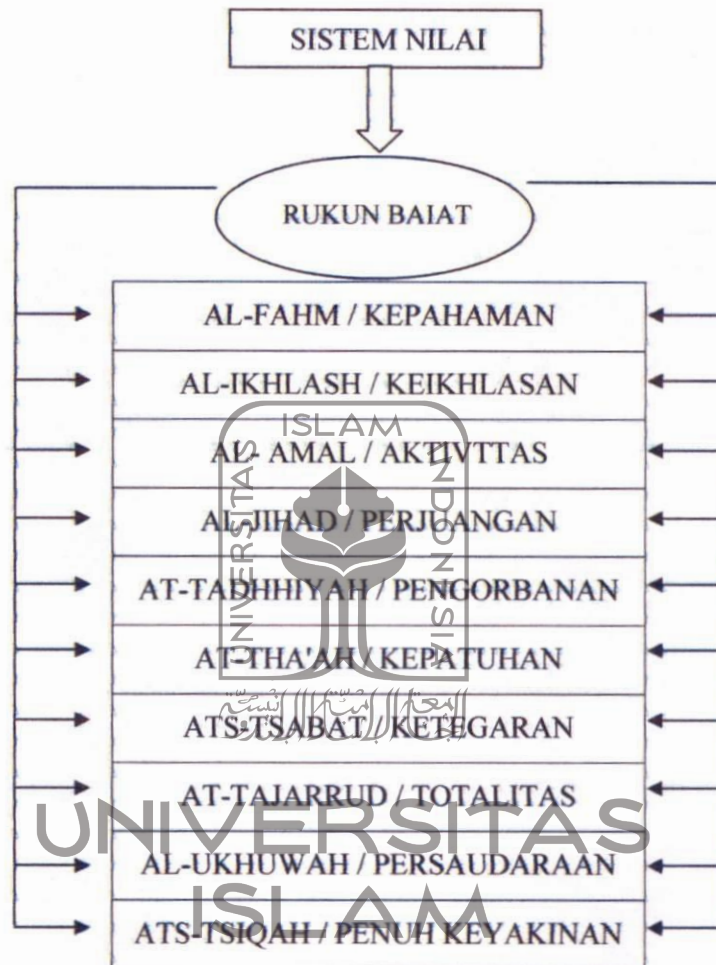 SISTEM NILAI
RUKUN BAIAT
AL-FAHM / KEPAHAMAN
AL-IKHLASH / KEIKHLASAN
AL- AMAL / AKTIVTTAS
AL-JIHAD / PERJUANGAN
AT-TADHHIYAH / PENGORBANAN
AT-THA'AH / KEPATUHAN
ATS-TSABAT / KETEGARAN
AT-TAJARRUD / TOTALITAS
AL-UKHUWAH / PERSAUDARAAN
ATS-TSIQAH / PENUH KEYAKINAN
UNIVERSITAS
ISLAM
INDONESIA
UNIVERSITAS
ISLAM